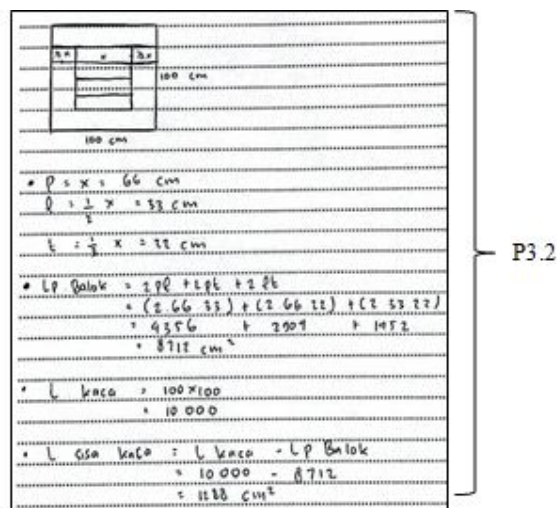 x
100 cm
100 cm
• P = x = 66 cm
l = 1/2 x = 33 cm
t = 1/3 x = 22 cm
• Lp Balok = 2pl + 2pt + 2lt
= (2.66 33) + (2.66 22) + (2 33 22)
= 4356 + 2904 + 1452
= 8712 cm²
• L kaca = 100×100
= 10 000
• L sisa kaca = L kaca - Lp Balok
= 10 000 - 8712
= 1288 cm²
P3.2